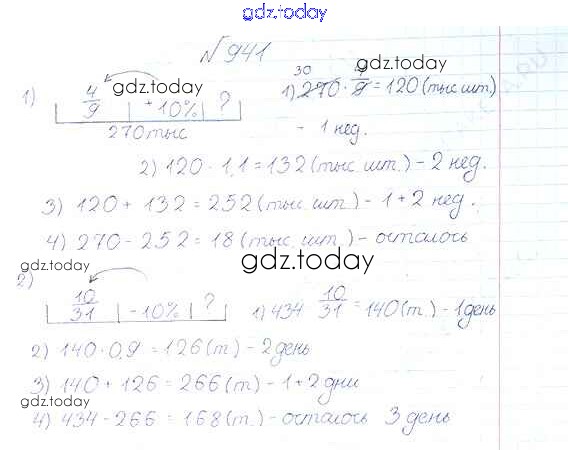 gdz.today
№941
1) 4/9 +10% ?
270 тыс
gdz.today
1) 270 · 4/9 = 120 (тыс шт.)
30
gdz.today
- 1 нед.
2) 120 · 1,1 = 132 (тыс. шт.) - 2 нед.
3) 120 + 132 = 252 (тыс. шт.) - 1 + 2 нед.
4) 270 - 252 = 18 (тыс. шт.) - осталось
gdz.today
gdz.today
2) 10/31 -10% ?
1) 434 10/31 = 140 (т.) - 1 день
2) 140 · 0,9 = 126 (т) - 2 день
3) 140 + 126 = 266 (т) - 1 + 2 дни
gdz.today
4) 434 - 266 = 168 (т.) - осталось 3 день